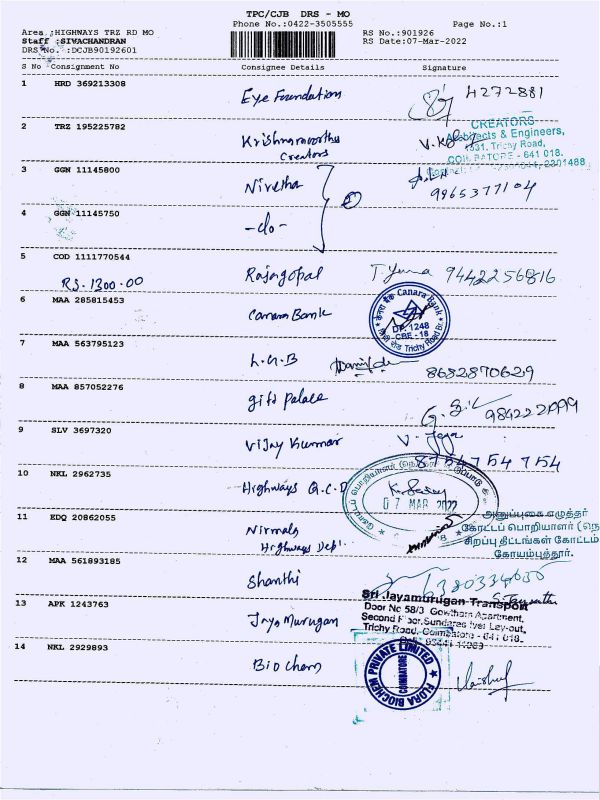 TPC/CJB DRS - MO
Phone No.:0422-3505555 Page No.:1
Area :HIGHWAYS TRZ RD MO RS No.:901926
Staff :SIVACHANDRAN RS Date:07-Mar-2022
DRS No. :DCJB90192601
S No Consignment No Consignee Details Signature
1 HRD 369213308 Eye Foundation 4272881
2 TRZ 195225782 Krishnamoorthy
Creators
CREATORS
Architects & Engineers,
1331, Trichy Road,
COIMBATORE - 641 018.
3 GGN 11145800 Nivetha 9965377104
4 GGN 11145750 -do-
5 COD 1111770544 Rajagopal 9442256816
RS. 1300.00
6 MAA 285815453 Canara Bank
केनरा बैंक Canara Bank
DP. 1248
CBE - 18
Trichy Road Br.
7 MAA 563795123 L.G.B 8682870629
8 MAA 857052276 gift palace
9 SLV 3697320 Vijay Kummar V. Jaya
8754754754
10 NKL 2962735 Highways Q.C.D
07 MAR 2022
11 EDQ 20862055 Nirmala
Highways Dept.
அனுப்புகை எழுத்தர்
கோட்டப் பொறியாளர் (நெ
சிறப்பு திட்டங்கள் கோட்டம்
கோயம்புத்தூர்.
12 MAA 561893185 Shanthi
13 APK 1243763 Jaya Murugan
Sri Jayamurugan Transport
Door No 58/3 Gowtham Apartment,
Second Floor, Sundaras Iyer Lay-out,
Trichy Road, Coimbatore - 641 018.
14 NKL 2929893 Bio chem
FLORA BIOCHEM PRIVATE LIMITED
COIMBATORE